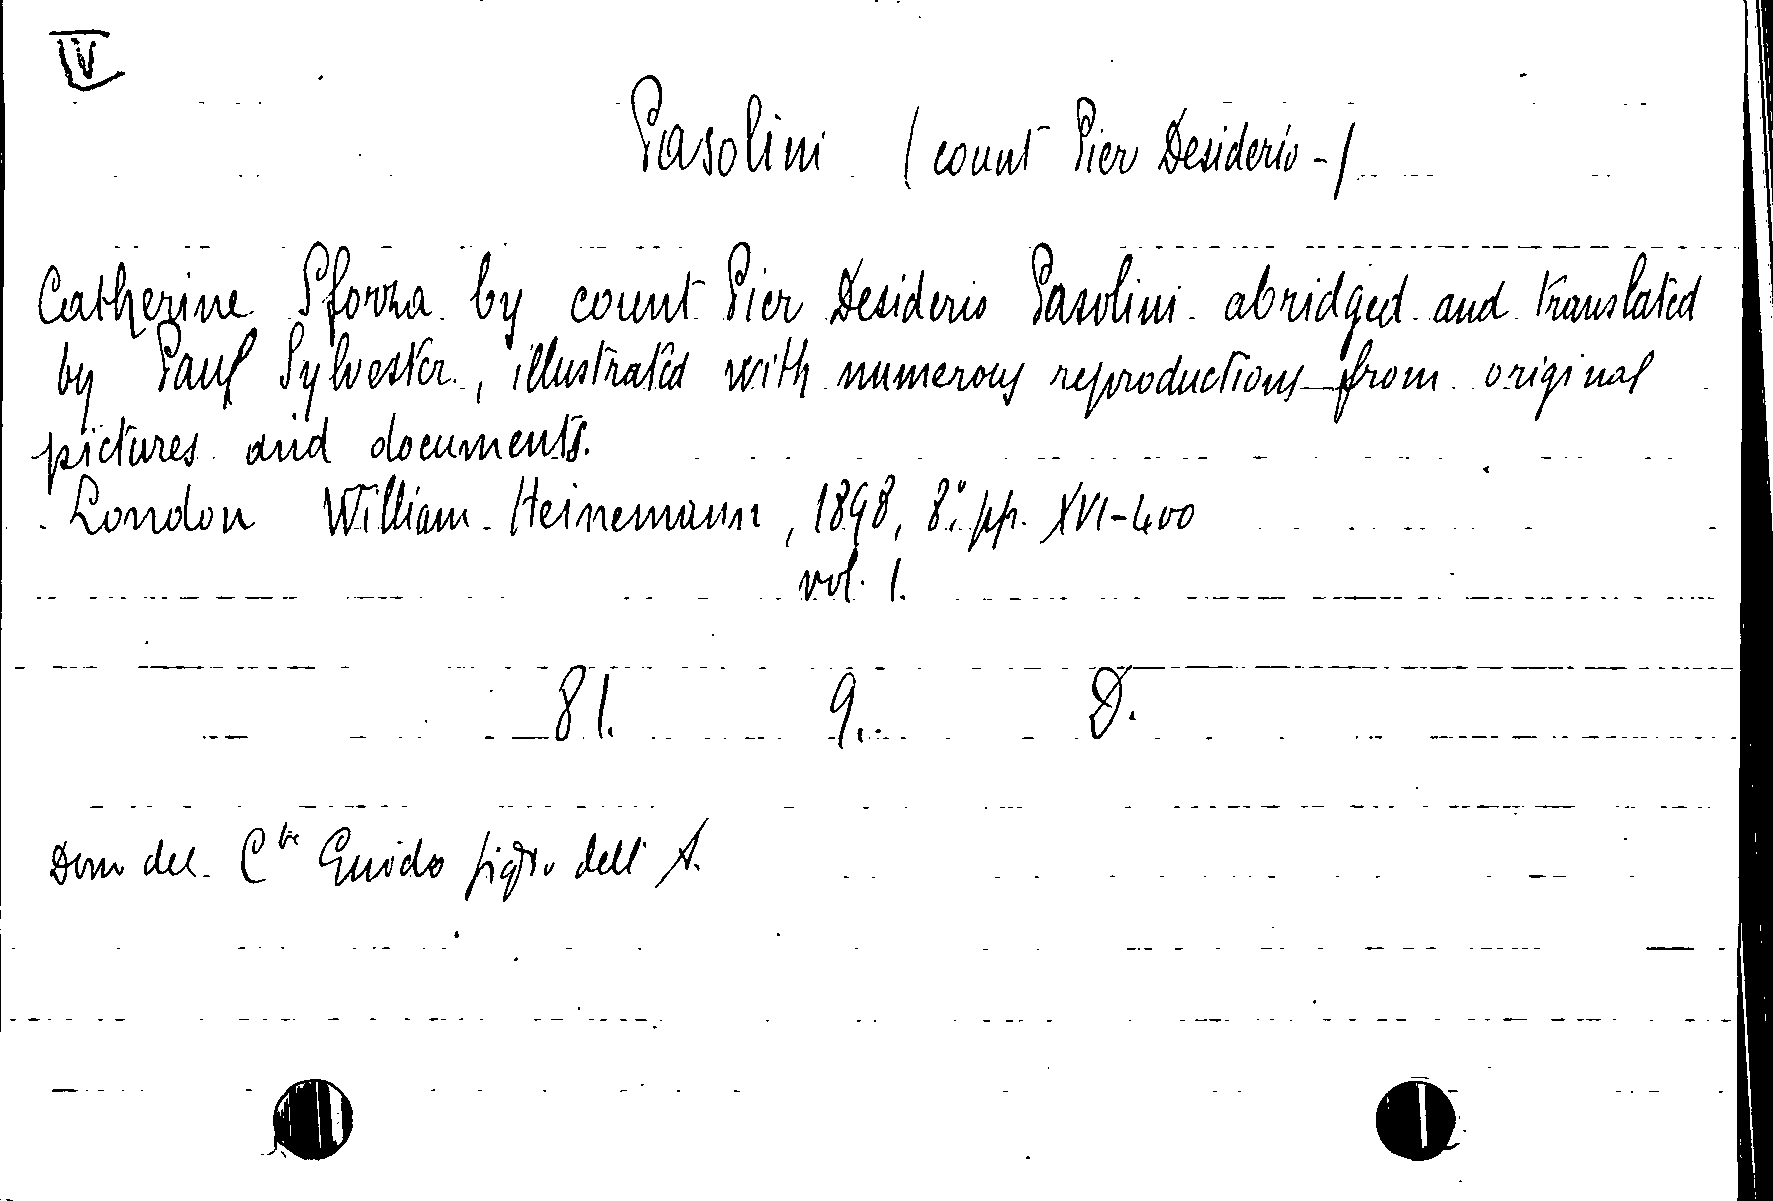 IV
Pasolini (count Pier Desiderio-)
Catherine Sforza by count Pier Desiderio Pasolini abridged and translated
by Paul Sylvester, illustrated with numerous reproductions from original
pictures and documents.
London William Heinemann, 1898, 8.° pp. XVI-400
vol. 1.
81. 9. D.
Dono del C.te Guido figlio dell' A.